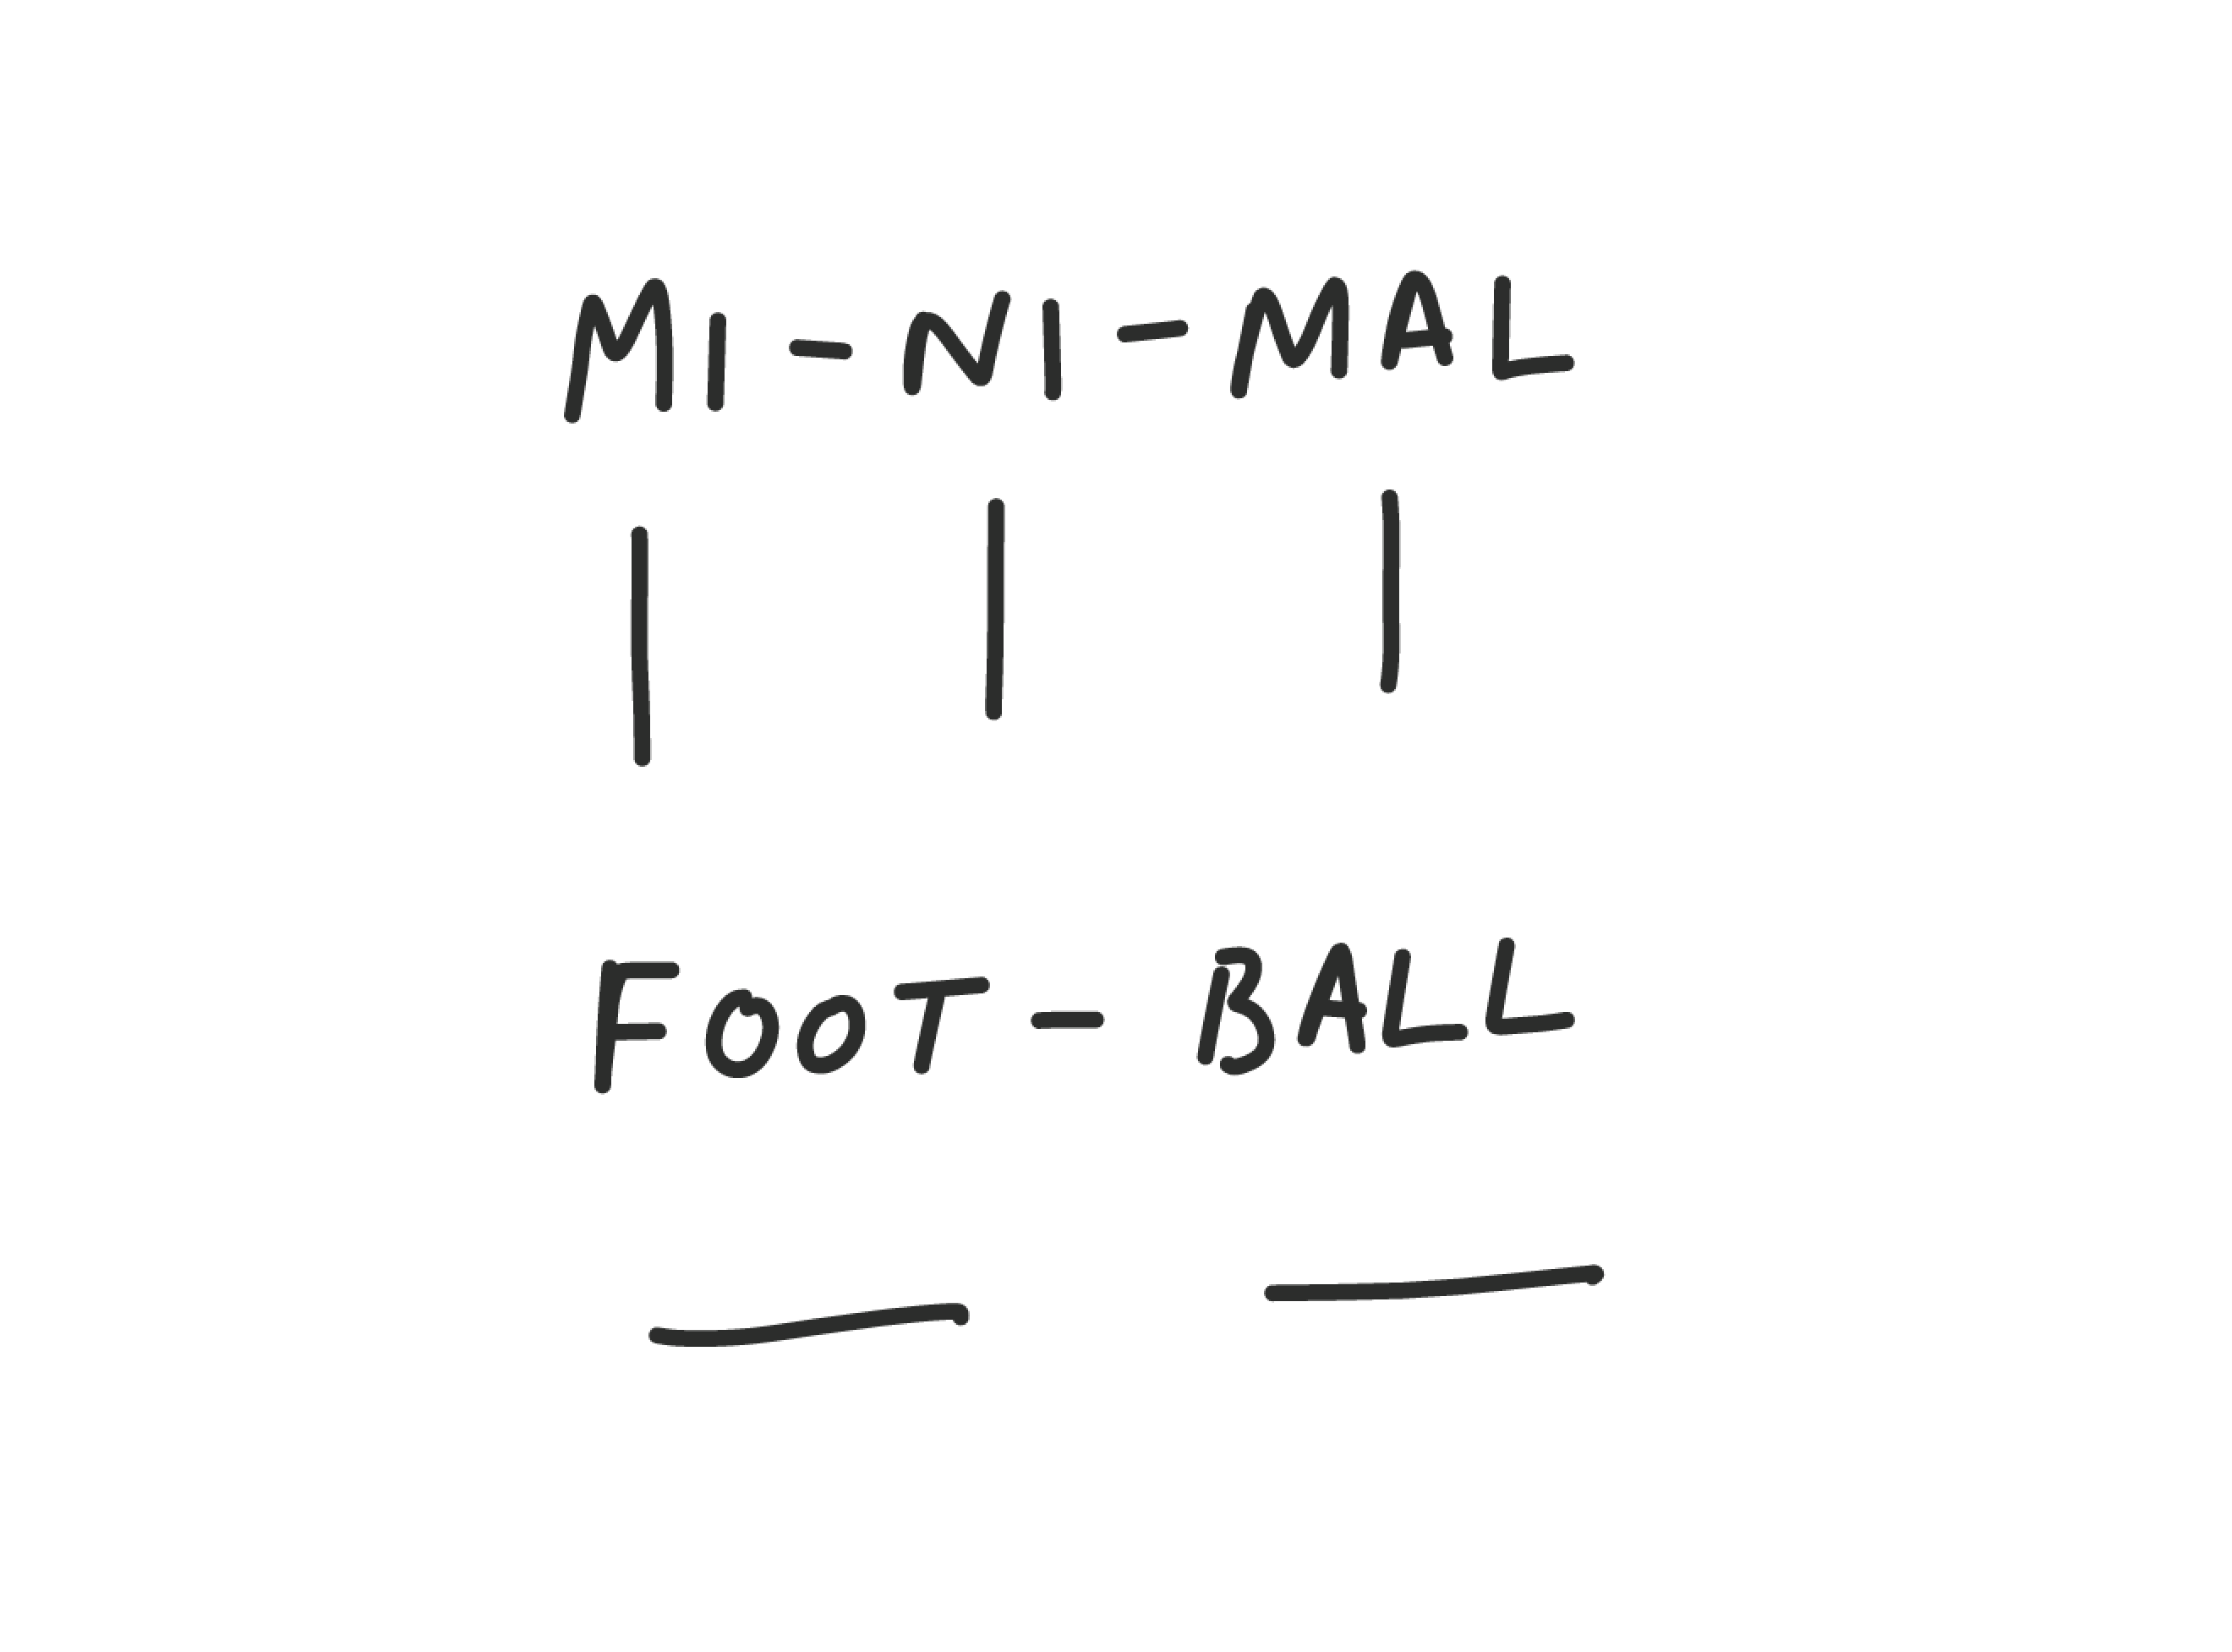 MI-NI-MAL
FOOT-BALL